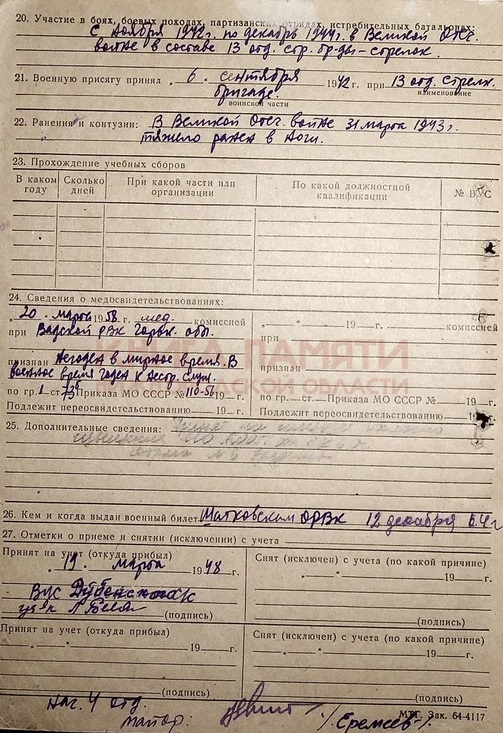 20. Участие в боях, боевых походах, партизанских отрядах, истребительных батальонах:
С ноября 1942г. по декабрь 1944г. в Великой Отеч.
войне в составе 13 отд. стр. бр-ды - стрелок.
21. Военную присягу принял 6 сентября 1942 г. при 13 отд. стрелк.
бригаде.
наименование
воинской части
22. Ранения и контузии: В Великой Отеч. войне 31 марта 1943г.
тяжело ранен в ноги.
23. Прохождение учебных сборов
В каком году
Сколько дней
При какой части или организации
По какой должностной квалификации
№ ВУС
24. Сведения о медосвидетельствованиях:
20 марта 1958 г. мед. комиссией
при Вадской РВК Горьк. обл.
признан Негоден в мирное время. В
военное время годен к нестр. служ.
по гр. 1 ст. 73 Приказа МО СССР № 110-56 19 — г.
Подлежит переосвидетельствованию 19 — г.
„ “ 19 — г. комиссией
при
признан
по гр. — ст. — Приказа МО СССР № 19 — г.
Подлежит переосвидетельствованию 19
КНИГА ПАМЯТИ
ОБЛАСТИ
25. Дополнительные сведения:
26. Кем и когда выдан военный билет Шатковским ОРВК 12 декабря 64 г
27. Отметки о приеме и снятии (исключении) с учета
Принят на учет (откуда прибыл)
19 марта 1948 г.
ВУС
(подпись)
Снят (исключен) с учета (по какой причине)
„ “ 19 — г.
(подпись)
Принят на учет (откуда прибыл)
„ “ 19 — г.
(подпись)
Снят (исключен) с учета (по какой причине)
„ “ 19 — г.
(подпись)
Нач. 4 отд.
майор: /Еремеев/
МТГ. Зак. 64-4117